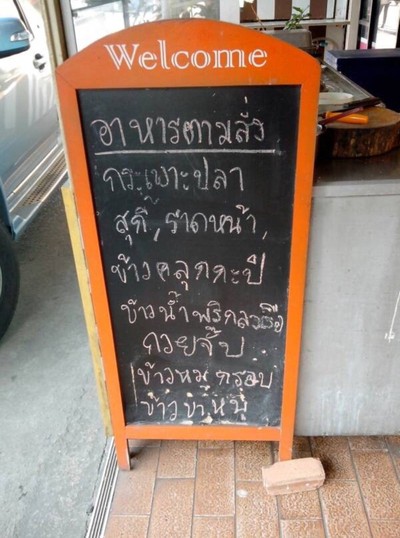 Welcome
อาหารตามสั่ง
กระเพาะปลา
สุกี้, ราดหน้า,
ข้าวคลุกกะปิ
ข้าวน้ำพริกลงเรือ
กวยจั๊บ
ข้าวหมูกรอบ
ข้าวขาหมู